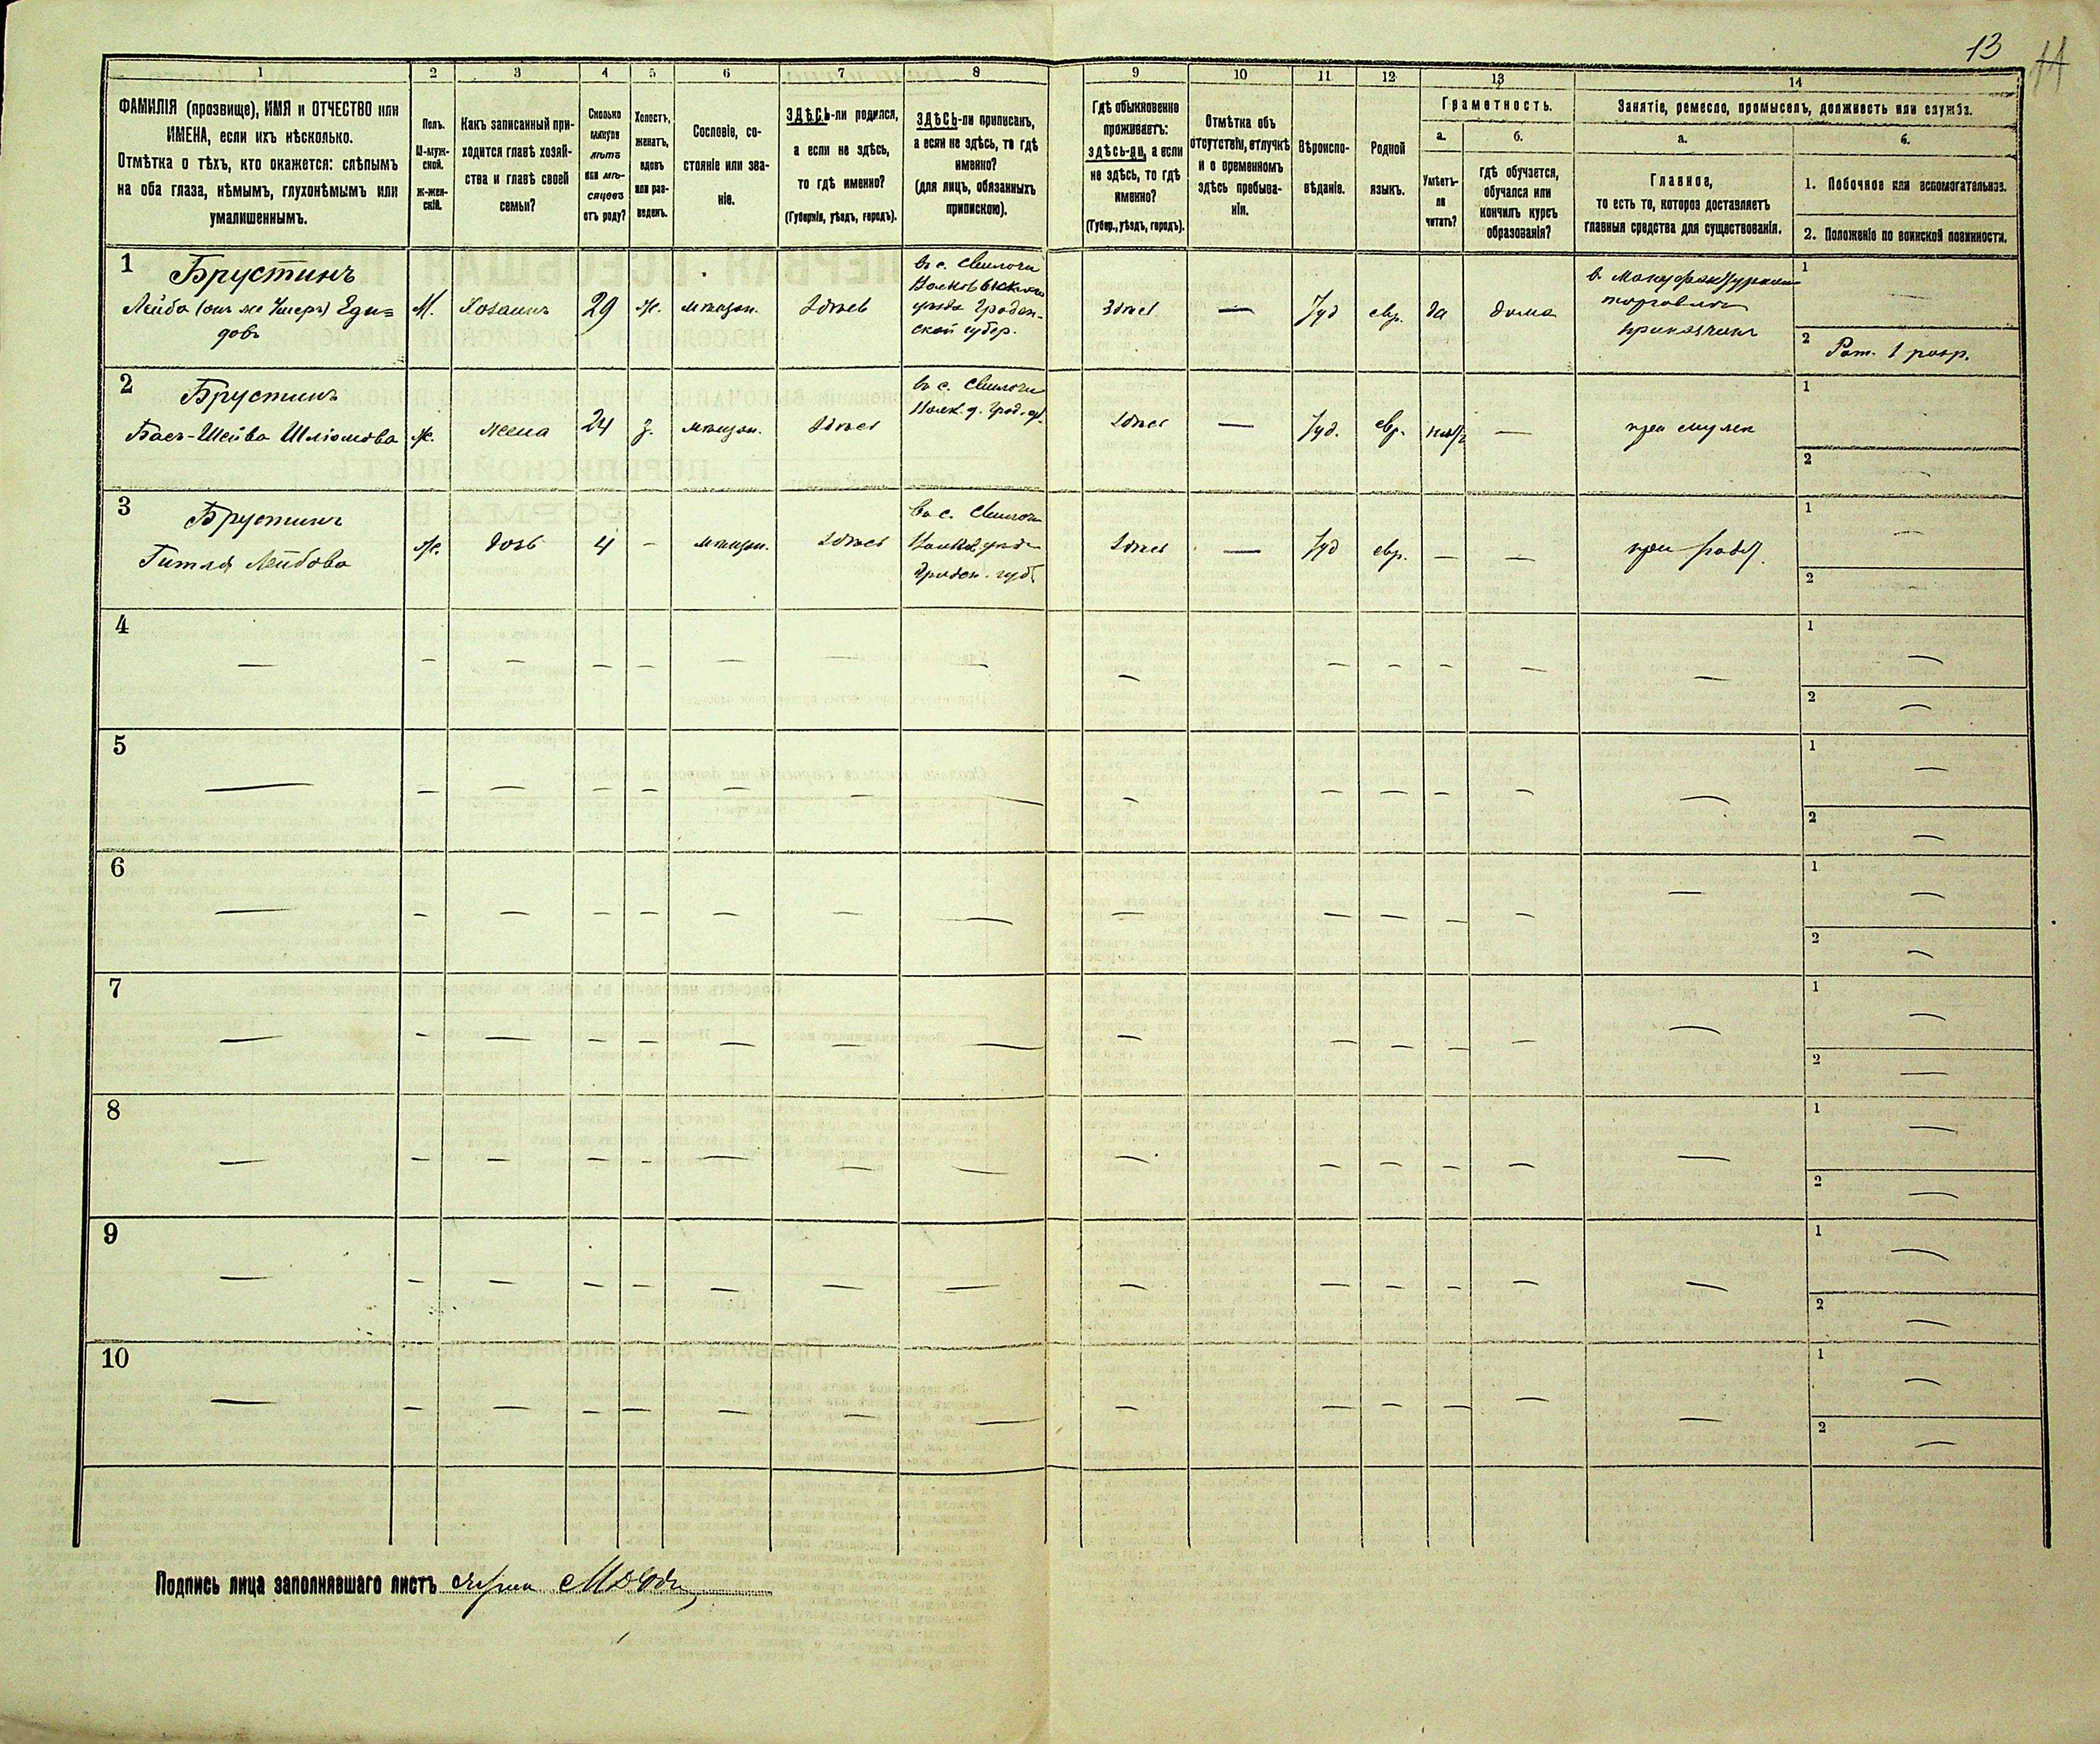 13
11
1
2
3
4
5
6
7
8
9
10
11
12
13
14
ФАМИЛІЯ (прозвище), ИМЯ и ОТЧЕСТВО или
ИМЕНА, если ихъ нѣсколько.
Отмѣтка о тѣхъ, кто окажется: слѣпымъ
на оба глаза, нѣмымъ, глухонѣмымъ или
умалишеннымъ.
Полъ.
М-муж-
ской.
Ж-жен-
скій.
Какъ записанный при-
ходится главѣ хозяй-
ства и главѣ своей
семьи?
Сколько
минуло
лѣтъ
или мѣ-
сяцевъ
отъ роду?
Холостъ,
женатъ,
вдовъ
или раз-
веденъ.
Сословіе, со-
стояніе или зва-
ніе.
ЗДѢСЬ-ли родился,
а если не здѣсь,
то гдѣ именно?
(Губернія, уѣздъ, городъ).
ЗДѢСЬ-ли приписанъ,
а если не здѣсь, то гдѣ
именно?
(для лицъ, обязанныхъ
припискою).
Гдѣ обыкновенно
проживаетъ:
здѣсь-ли, а если
не здѣсь, то гдѣ
именно?
(Губер., уѣздъ, городъ).
Отмѣтка объ
отсутствіи, отлучкѣ
и о временномъ
здѣсь пребыва-
ніи.
Вѣроиспо-
вѣданіе.
Родной
языкъ.
Грамотность.
а.
Умѣетъ-
ли
читать?
б.
гдѣ обучается,
обучался или
кончилъ курсъ
образованія?
Занятіе, ремесло, промыселъ, должность или служба.
а.
Главное,
то есть то, которое доставляетъ
главныя средства для существованія.
б.
1. Побочное или вспомогательное.
2. Положеніе по воинской повинности.
1
Брустинъ
Лейба (онъ же Ушеръ) Еди=
довъ
М.
Хозаинъ
29
Ж.
мѣщан.
Здѣсь
въ с. Свислочи
Волковыскаго
уѣзда Гроднен-
ской губер.
Здѣсь
—
Іуд
евр.
да
дома
в. Мануфактурной
торговлѣ
приказчикъ
1
—
2
Рат. 1 разр.
2
Брустинъ
Бася-Шейва Шліомова
Ж.
жена
24
З.
мѣщан.
Здѣсь
въ с. Свислочи
Волк. у. Грод. г.
Здѣсь
—
Іуд.
евр.
нѣтъ
—
при мужѣ
1
2
—
3
Брустинъ
Гитля Лейбова
Ж.
дочь
4
—
мѣщан.
Здѣсь
въ с. Свислочи
Волков. уѣзда
Гроден. губ.
Здѣсь
—
Іуд
евр.
—
—
1
—
2
—
4
1
2
5
1
2
6
1
2
7
1
2
8
1
2
9
1
2
10
1
2
Подпись лица заполнявшаго листъ